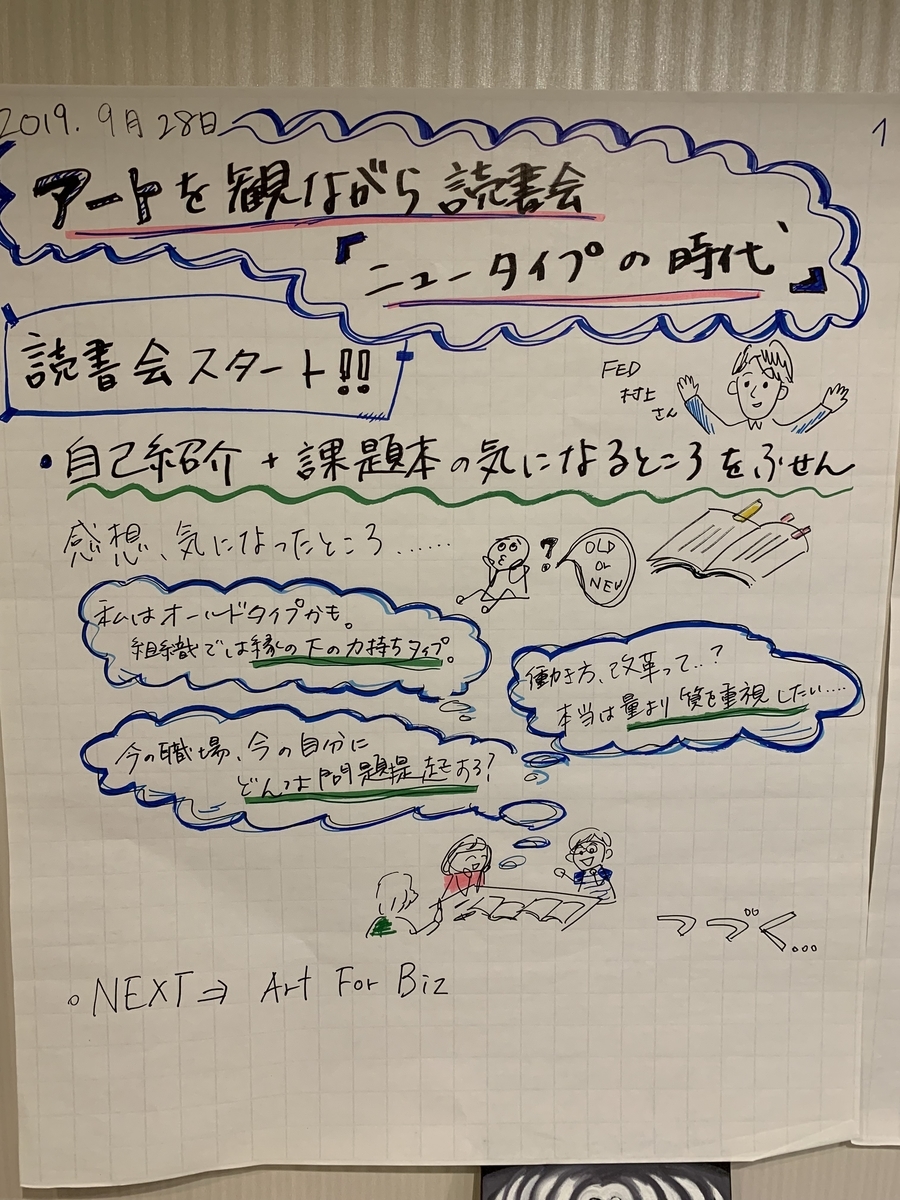 2019. 9月28日
1
アートを観ながら読書会
『ニュータイプの時代』
読書会スタート!!
FED
村上
さん
・自己紹介 + 課題本の気になるところをふせん
感想、気になったところ……
?
OLD
or
NEW
私はオールドタイプかも。
組織では縁の下の力持ちタイプ。
働き方、改革って..?
本当は量より質を重視したい....
今の職場、今の自分に
どんな問題提起する?
つづく...
○ NEXT ⇒ Art For Biz